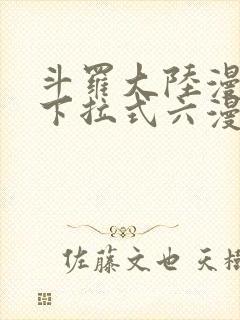 斗羅大陸漫
下拉式六漫
佐藤文也 天樹